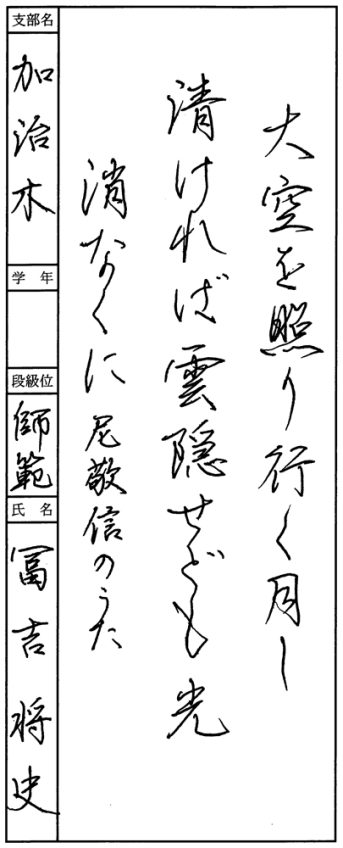 大空を照り行く月し
清ければ雲隠せども光
消なくに 尼敬信のうた
支部名
加治木
学年
段級位
師範
氏名
冨吉将史